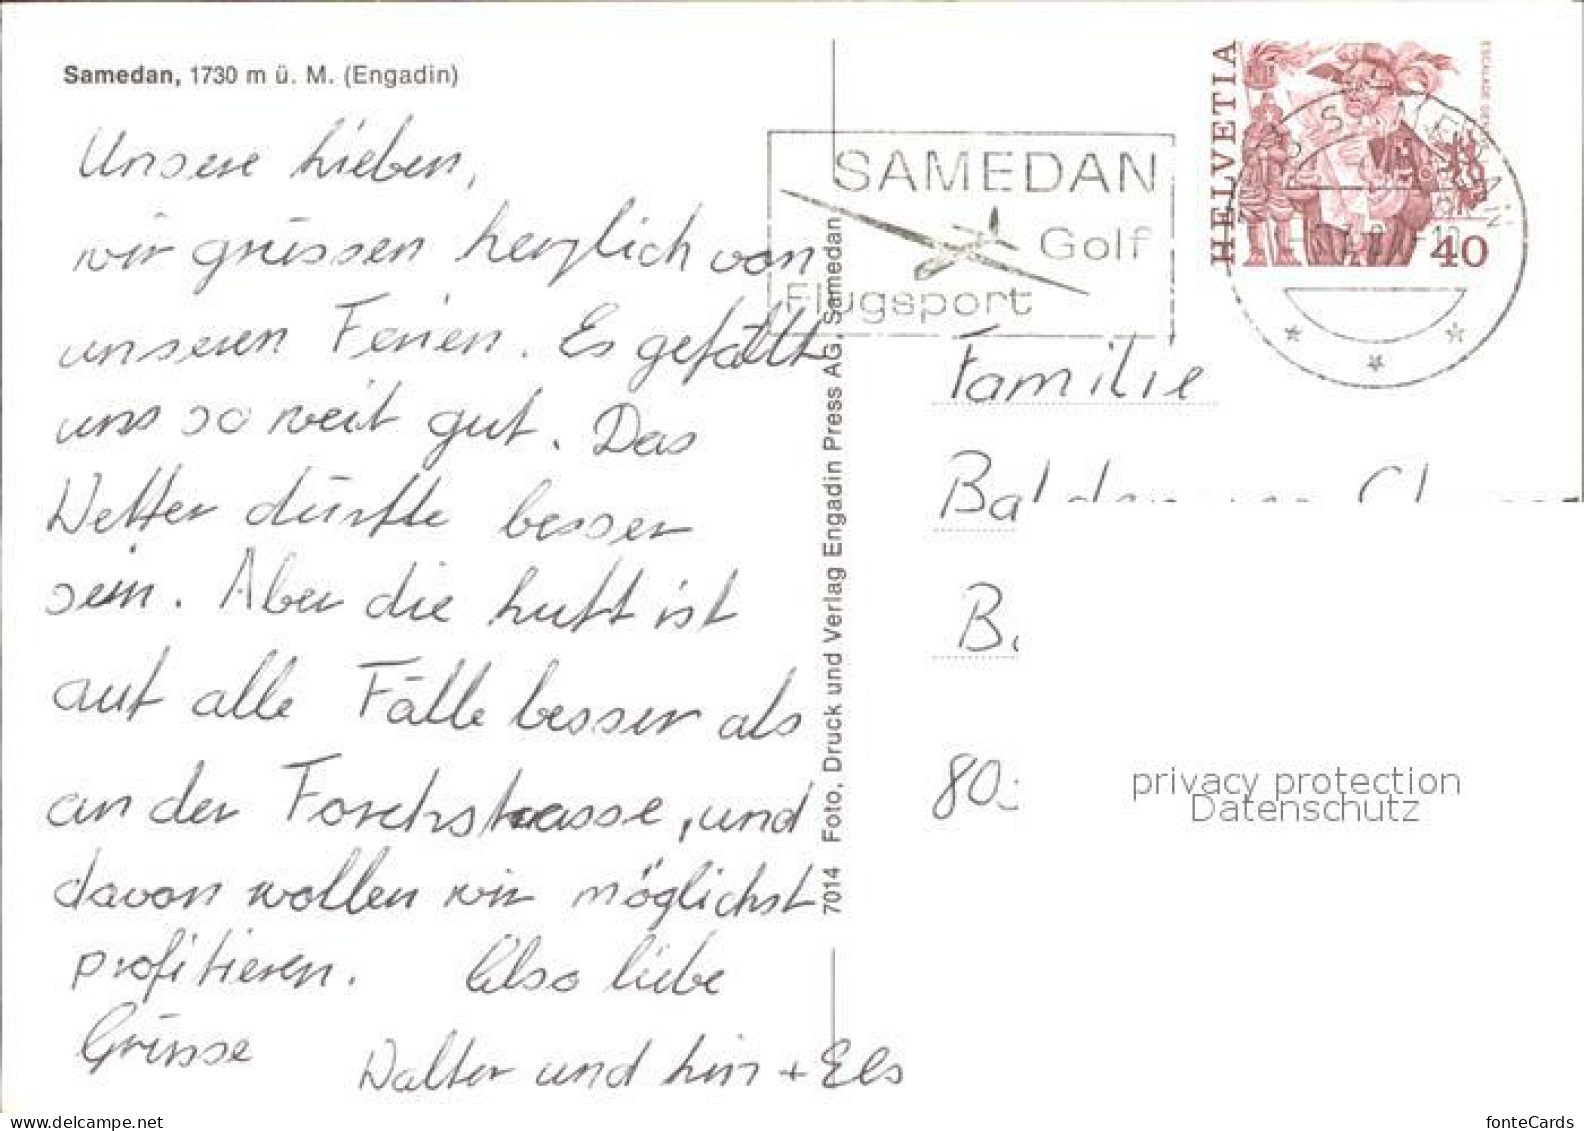 Samedan, 1730 m ü. M. (Engadin)
Unsere Lieben,
wir grüssen herzlich von
unseren Ferien. Es gefällt
uns so weit gut. Das
Wetter dürfte besser
sein. Aber die Luft ist
auf alle Fälle besser als
an der Forchstrasse, und
davon wollen wir möglichst
profitieren. Also liebe
Grüsse
Walter und + Els
7014 Foto, Druck und Verlag Engadin Press AG, Samedan
SAMEDAN
Golf
Flugsport
HELVETIA
40
Familie
B.
privacy protection
Datenschutz
www.delcampe.net
fonteCards